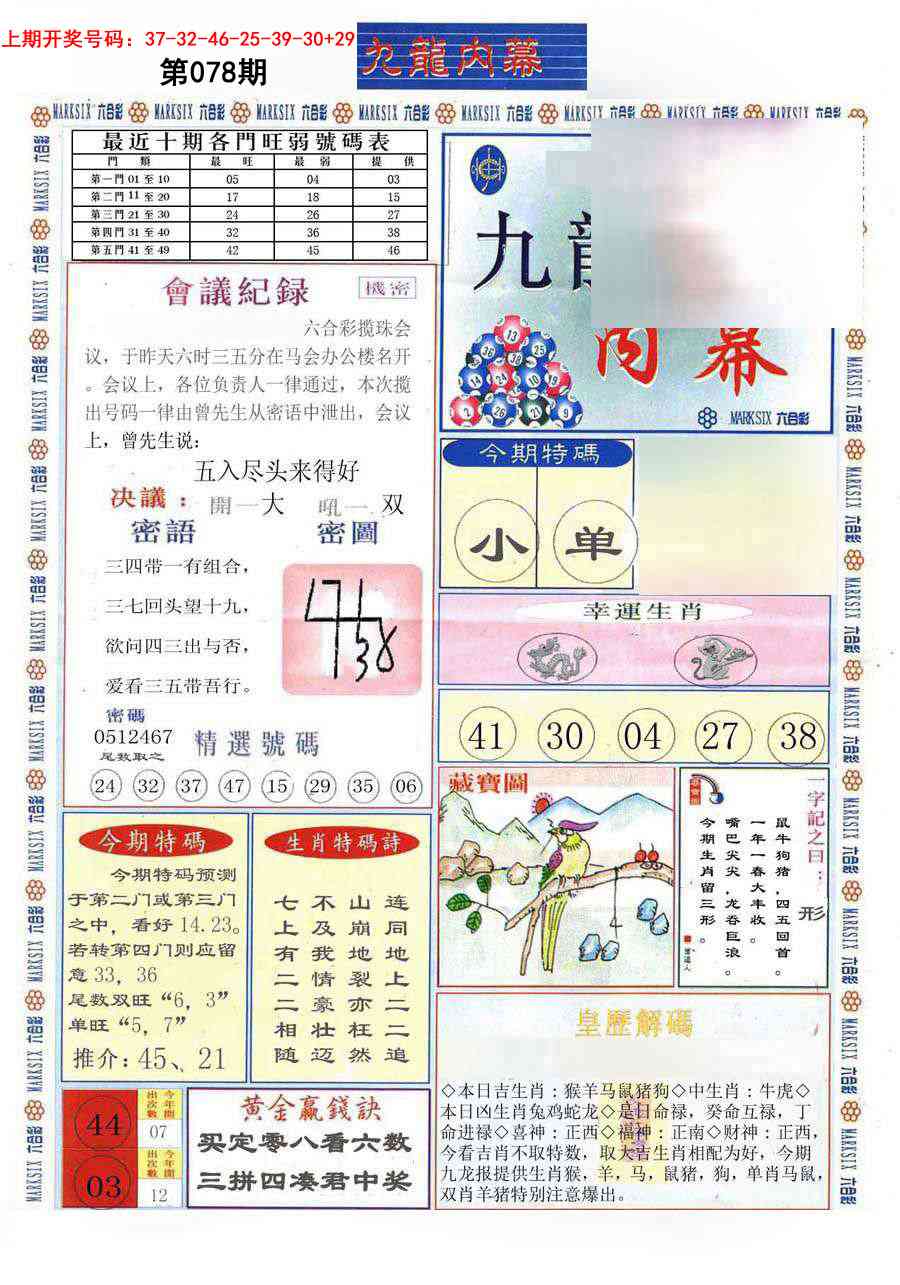 上期开奖号码：37-32-46-25-39-30+29
第078期
九龍内幕
MARKSIX 六合彩
最近十期各門旺弱號碼表
門 類 最 旺 最 弱 提 供
第一門 01 至 10 05 04 03
第二門 11 至 20 17 18 15
第三門 21 至 30 24 26 27
第四門 31 至 40 32 36 38
第五門 41 至 49 42 45 46
會議紀録
機密
六合彩揽珠会
议，于昨天六时三五分在马会办公楼名开
。会议上，各位负责人一律通过，本次揽
出号码一律由曾先生从密语中泄出，会议
上，曾先生说：
五入尽头来得好
决議： 開一大 吼一双
密語 密圖
三四带一有组合，
三七回头望十九，
欲问四三出与否，
爱看三五带吾行。
密碼
0512467
尾数取之
精選號碼
24 32 37 47 15 29 35 06
九
内幕
13
36 38 25
14 24 10 19
2 26 21 9
MARKSIX 六合彩
今期特碼
小 单
幸運生肖
41 30 04 27 38
藏寶圖
一字記之曰：形
鼠牛狗猪，四五回首。
一年一春大丰收。
嘴巴尖尖，龙吞巨浪。
今期生肖留三形。
今期特碼
今期特码预测
于第二门或第三门
之中，看好 14.23。
若转第四门则应留
意 33，36
尾数双旺“6，3”
单旺“5，7”
推介：45、21
生肖特碼詩
连同地上二二追
山崩地裂亦枉然
不及我情豪壮迈
七上有二二相随
44 今年開出次數 07
03 今年開出次數 12
黄金赢錢訣
买定零八看六数
三拼四凑君中奖
皇歷解碼
◇本日吉生肖：猴羊马鼠猪狗◇中生肖：牛虎◇
本日凶生肖兔鸡蛇龙◇是日命禄，癸命互禄，丁
命进禄◇喜神：正西◇福神：正南◇财神：正西，
今看吉肖不取特数，取大吉生肖相配为好，今期
九龙报提供生肖猴，羊，马，鼠猪，狗，单肖马鼠，
双肖羊猪特别注意爆出。